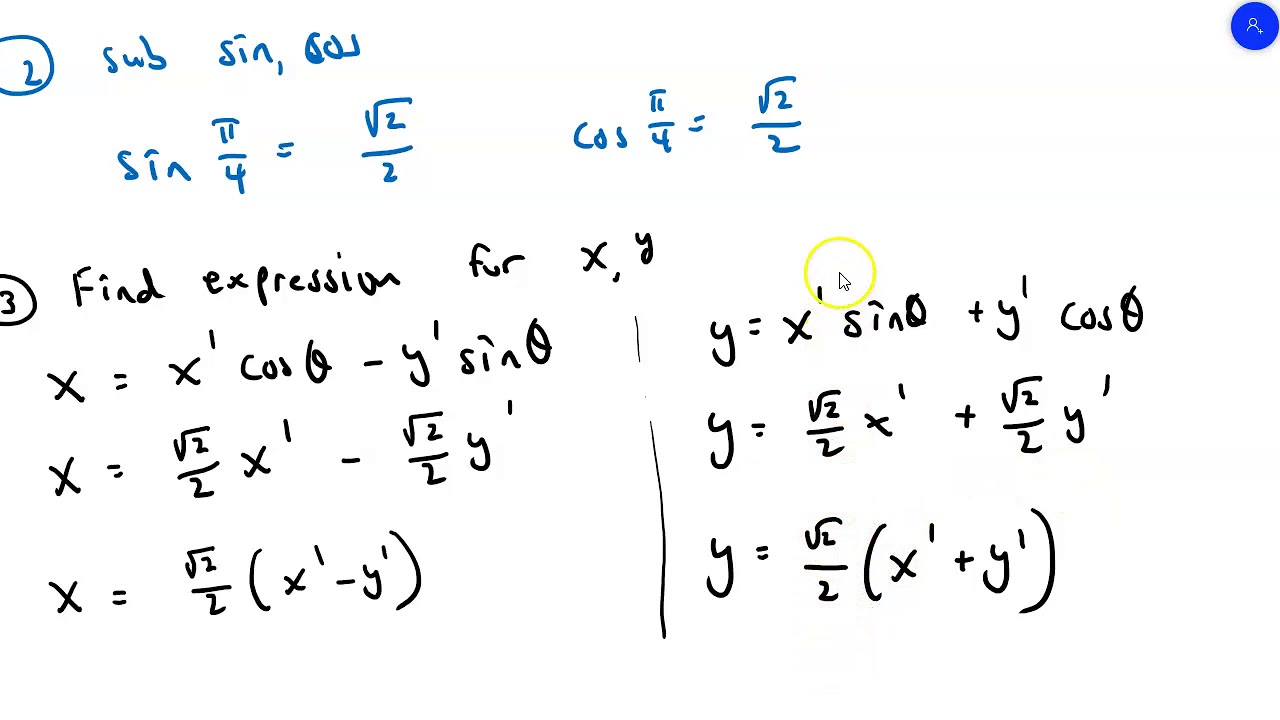 2 sub sin, cos
sin π/4 = √2/2 cos π/4 = √2/2
3 Find expression for x, y
x = x' cosθ - y' sinθ
x = √2/2 x' - √2/2 y'
x = √2/2 (x' - y')
y = x' sinθ + y' cosθ
y = √2/2 x' + √2/2 y'
y = √2/2 (x' + y')